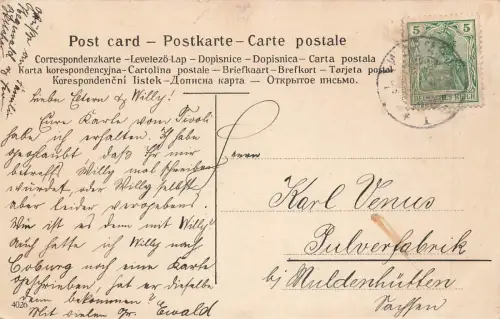 Post card – Postkarte – Carte postale
Correspondenzkarte – Levelező-Lap – Dopisnice – Dopisnica – Carta postala
Karta korespondencyjna – Cartolina postale – Briefkaart – Brefkort – Tarjeta postal
Korespondenční listek – Дописна карта – Открытое письмо.
5 5
Liebe Eltern & Willy!
Eure Karte vom Tivoli
habe ich erhalten. Ich habe
geglaubt daß Ihr mir
betreffs Willy mal schreiben
würdet, oder Willy selbst,
aber leider vergebens.
Wie ist es denn mit Willy?
Auch hatte ich Willy nach
Coburg noch eine Karte
geschrieben, hat er dieselbe
denn bekommen?
Mit vielen Gr. Ewald
4026
Herrn
Karl Venus
Pulverfabrik
bj Muldenhütten
Sachsen